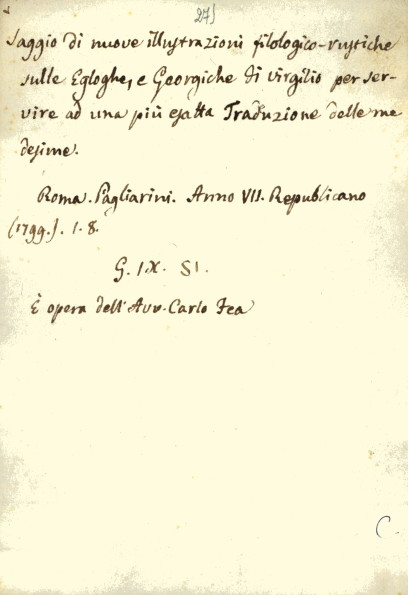 275
Saggio di nuove illustrazioni filologico-rustiche
sulle Egloghe, e Georgiche di Virgilio per ser-
vire ad una più esatta Traduzione delle me
desime.
Roma. Pagliarini. Anno VII. Republicano
(1799.). 1. 8.
G. IX. 51.
È opera dell'Avv. Carlo Fea
C.